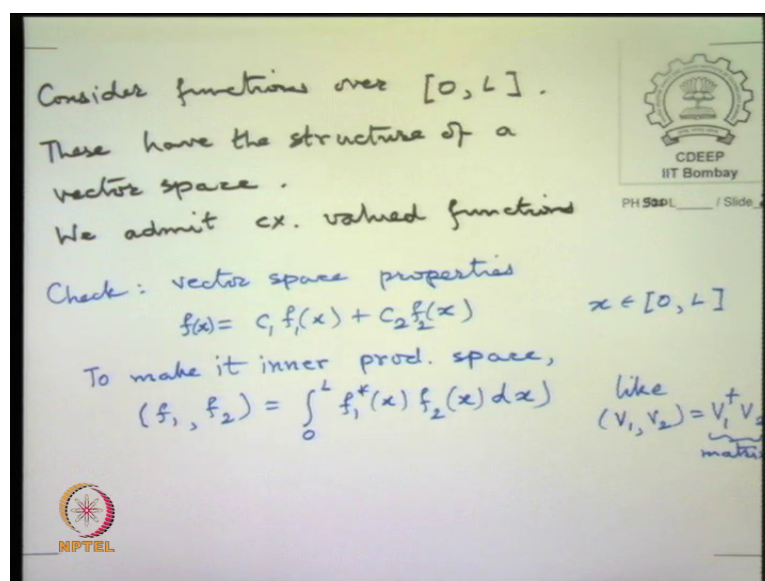 Consider functions over [0, L].
These have the structure of a
vector space.
We admit cx. valued functions
CDEEP
IIT Bombay
PH 520 L____ / Slide
Check: vector space properties
f(x) = C₁ f₁(x) + C₂ f₂(x) x ∈ [0, L]
To make it inner prod. space,
(f₁, f₂) = ∫₀ᴸ f₁*(x) f₂(x) dx) like
(V₁, V₂) = V₁† V₂
NPTEL